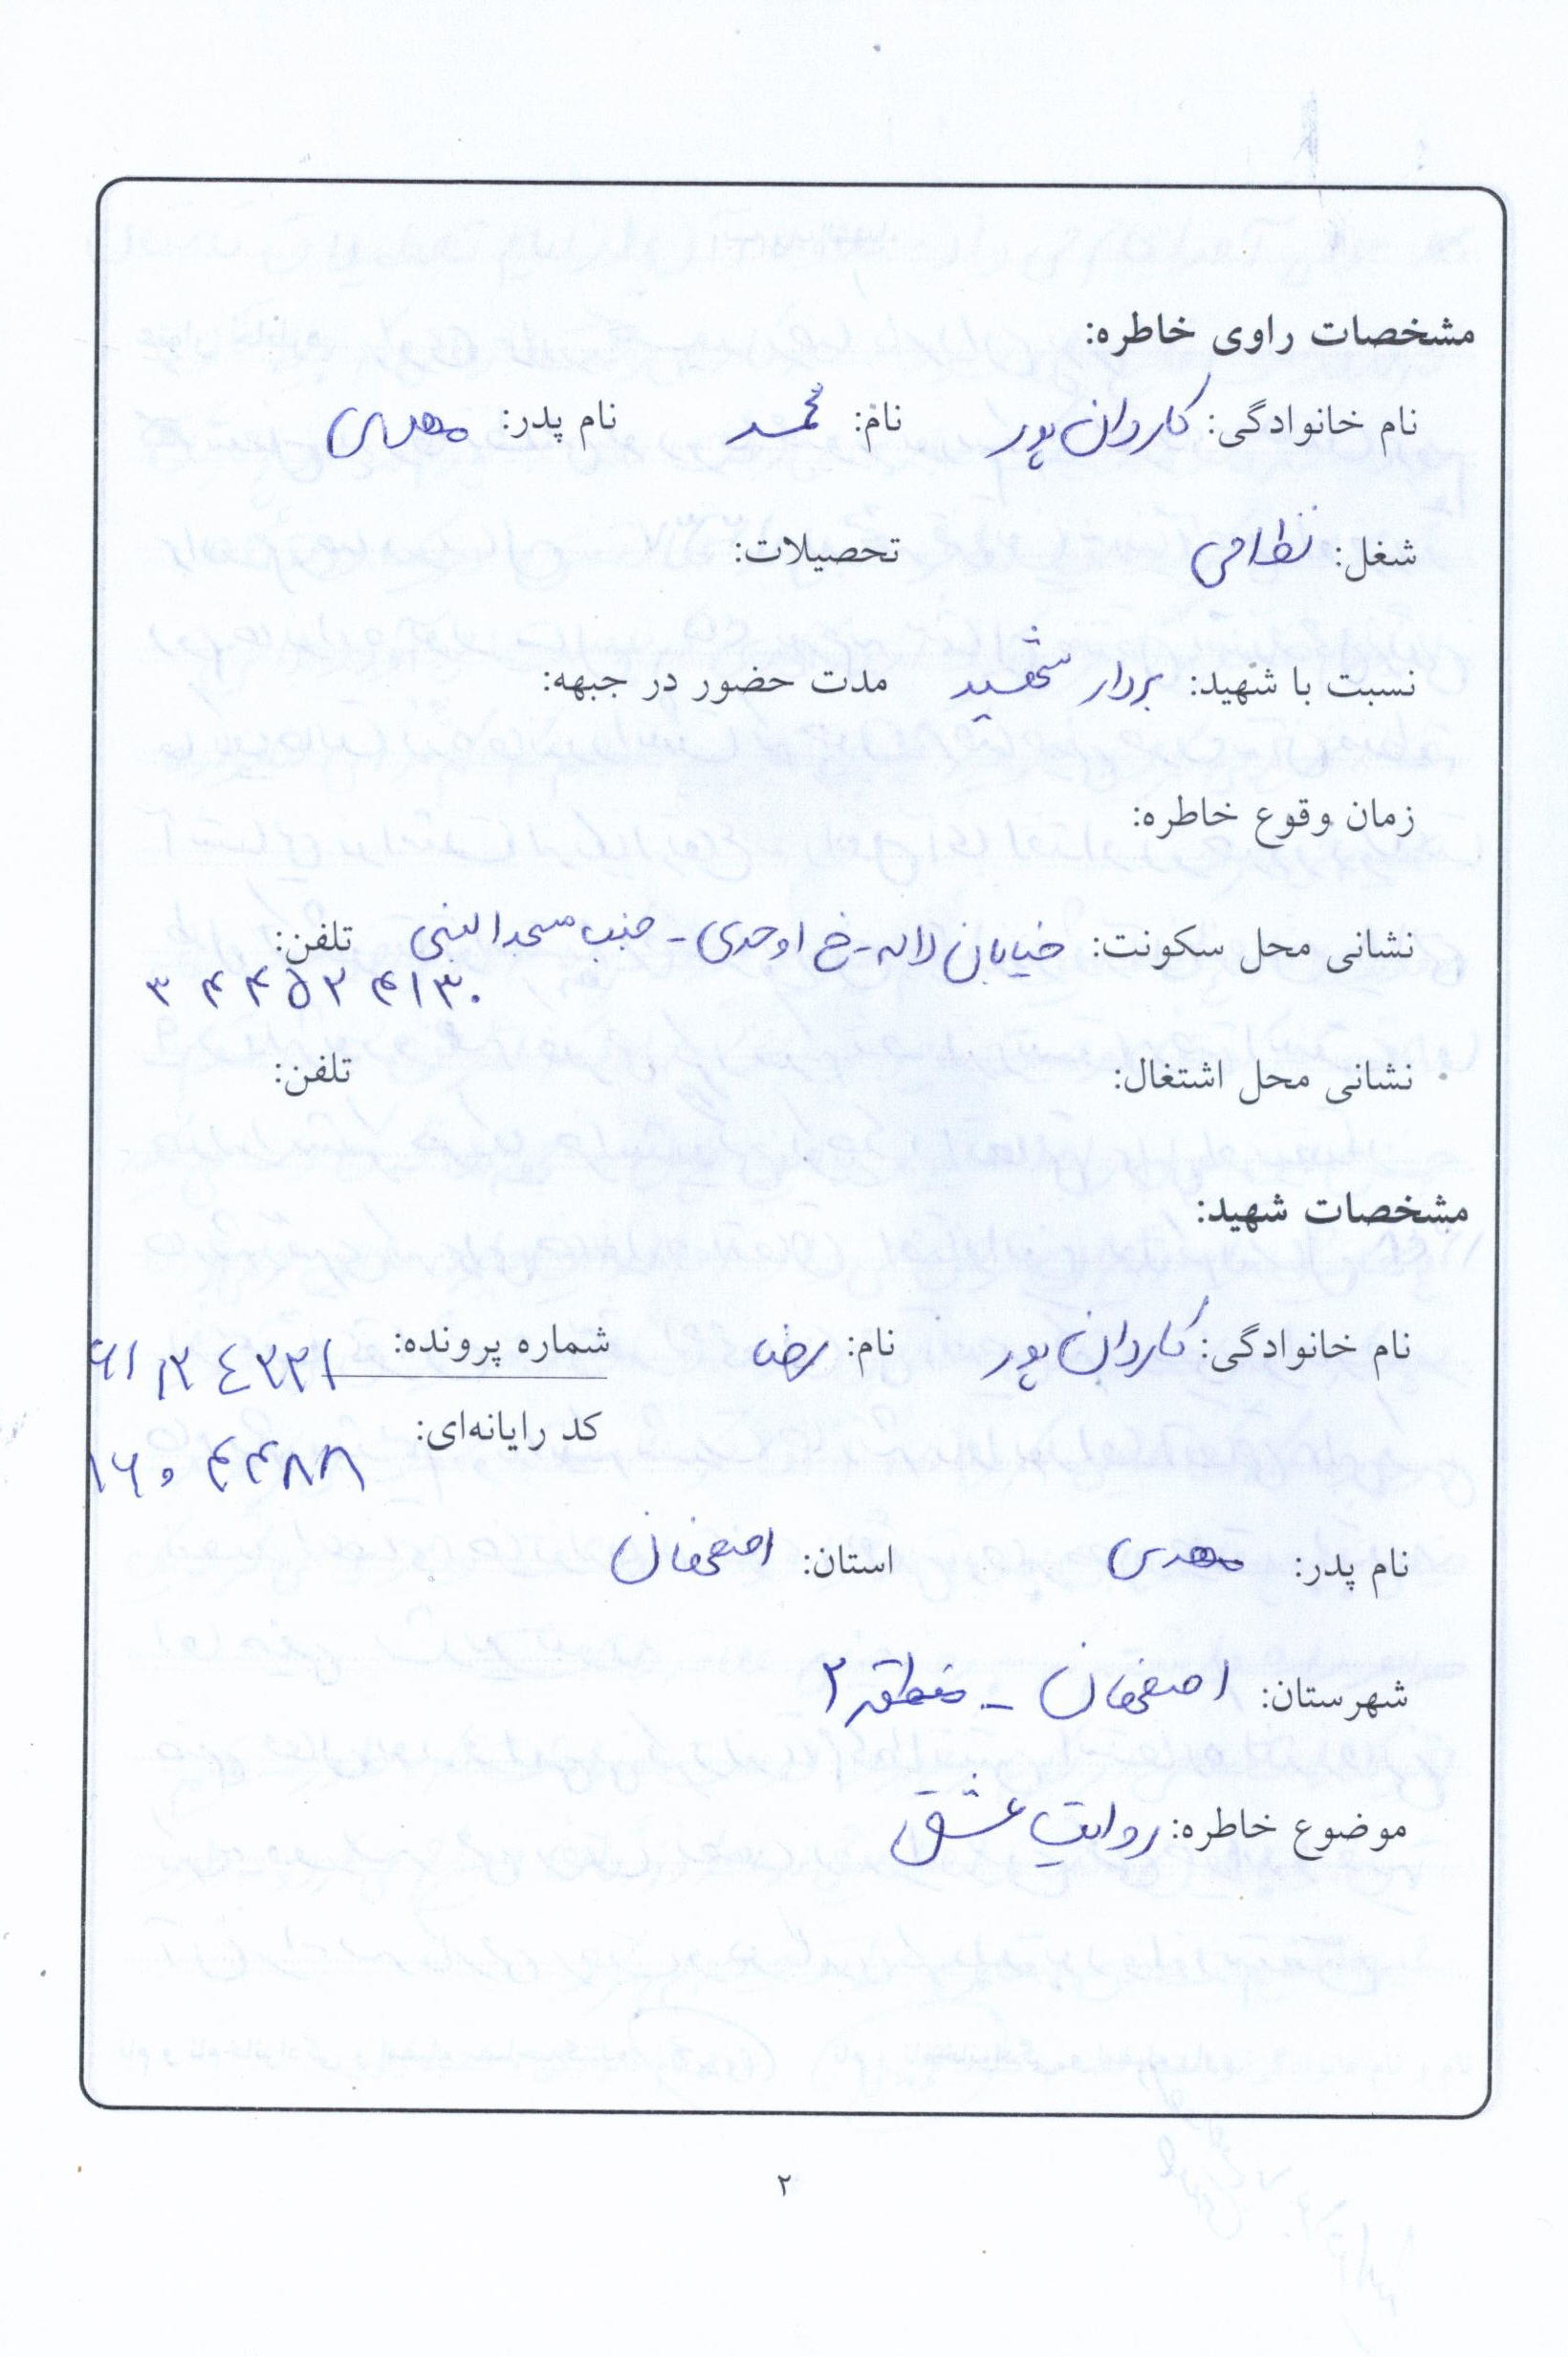 مشخصات راوی خاطره:
نام خانوادگی: کاردان پور نام: محمد نام پدر: مهدی
شغل: نظامی تحصیلات:
نسبت با شهید: بردار شهید مدت حضور در جبهه:
زمان وقوع خاطره:
نشانی محل سکونت: خیابان لاله - خ اوحدی - جنب مسجد النبی تلفن:
نشانی محل اشتغال: تلفن:
مشخصات شهید:
نام خانوادگی: کاردان پور نام: رضا شماره پرونده:
کد رایانه‌ای: ۱۶۰۴۴۸۸
نام پدر: مهدی استان: اصفهان
شهرستان: اصفهان - منطقه ۲
موضوع خاطره: روایت عشق
۲